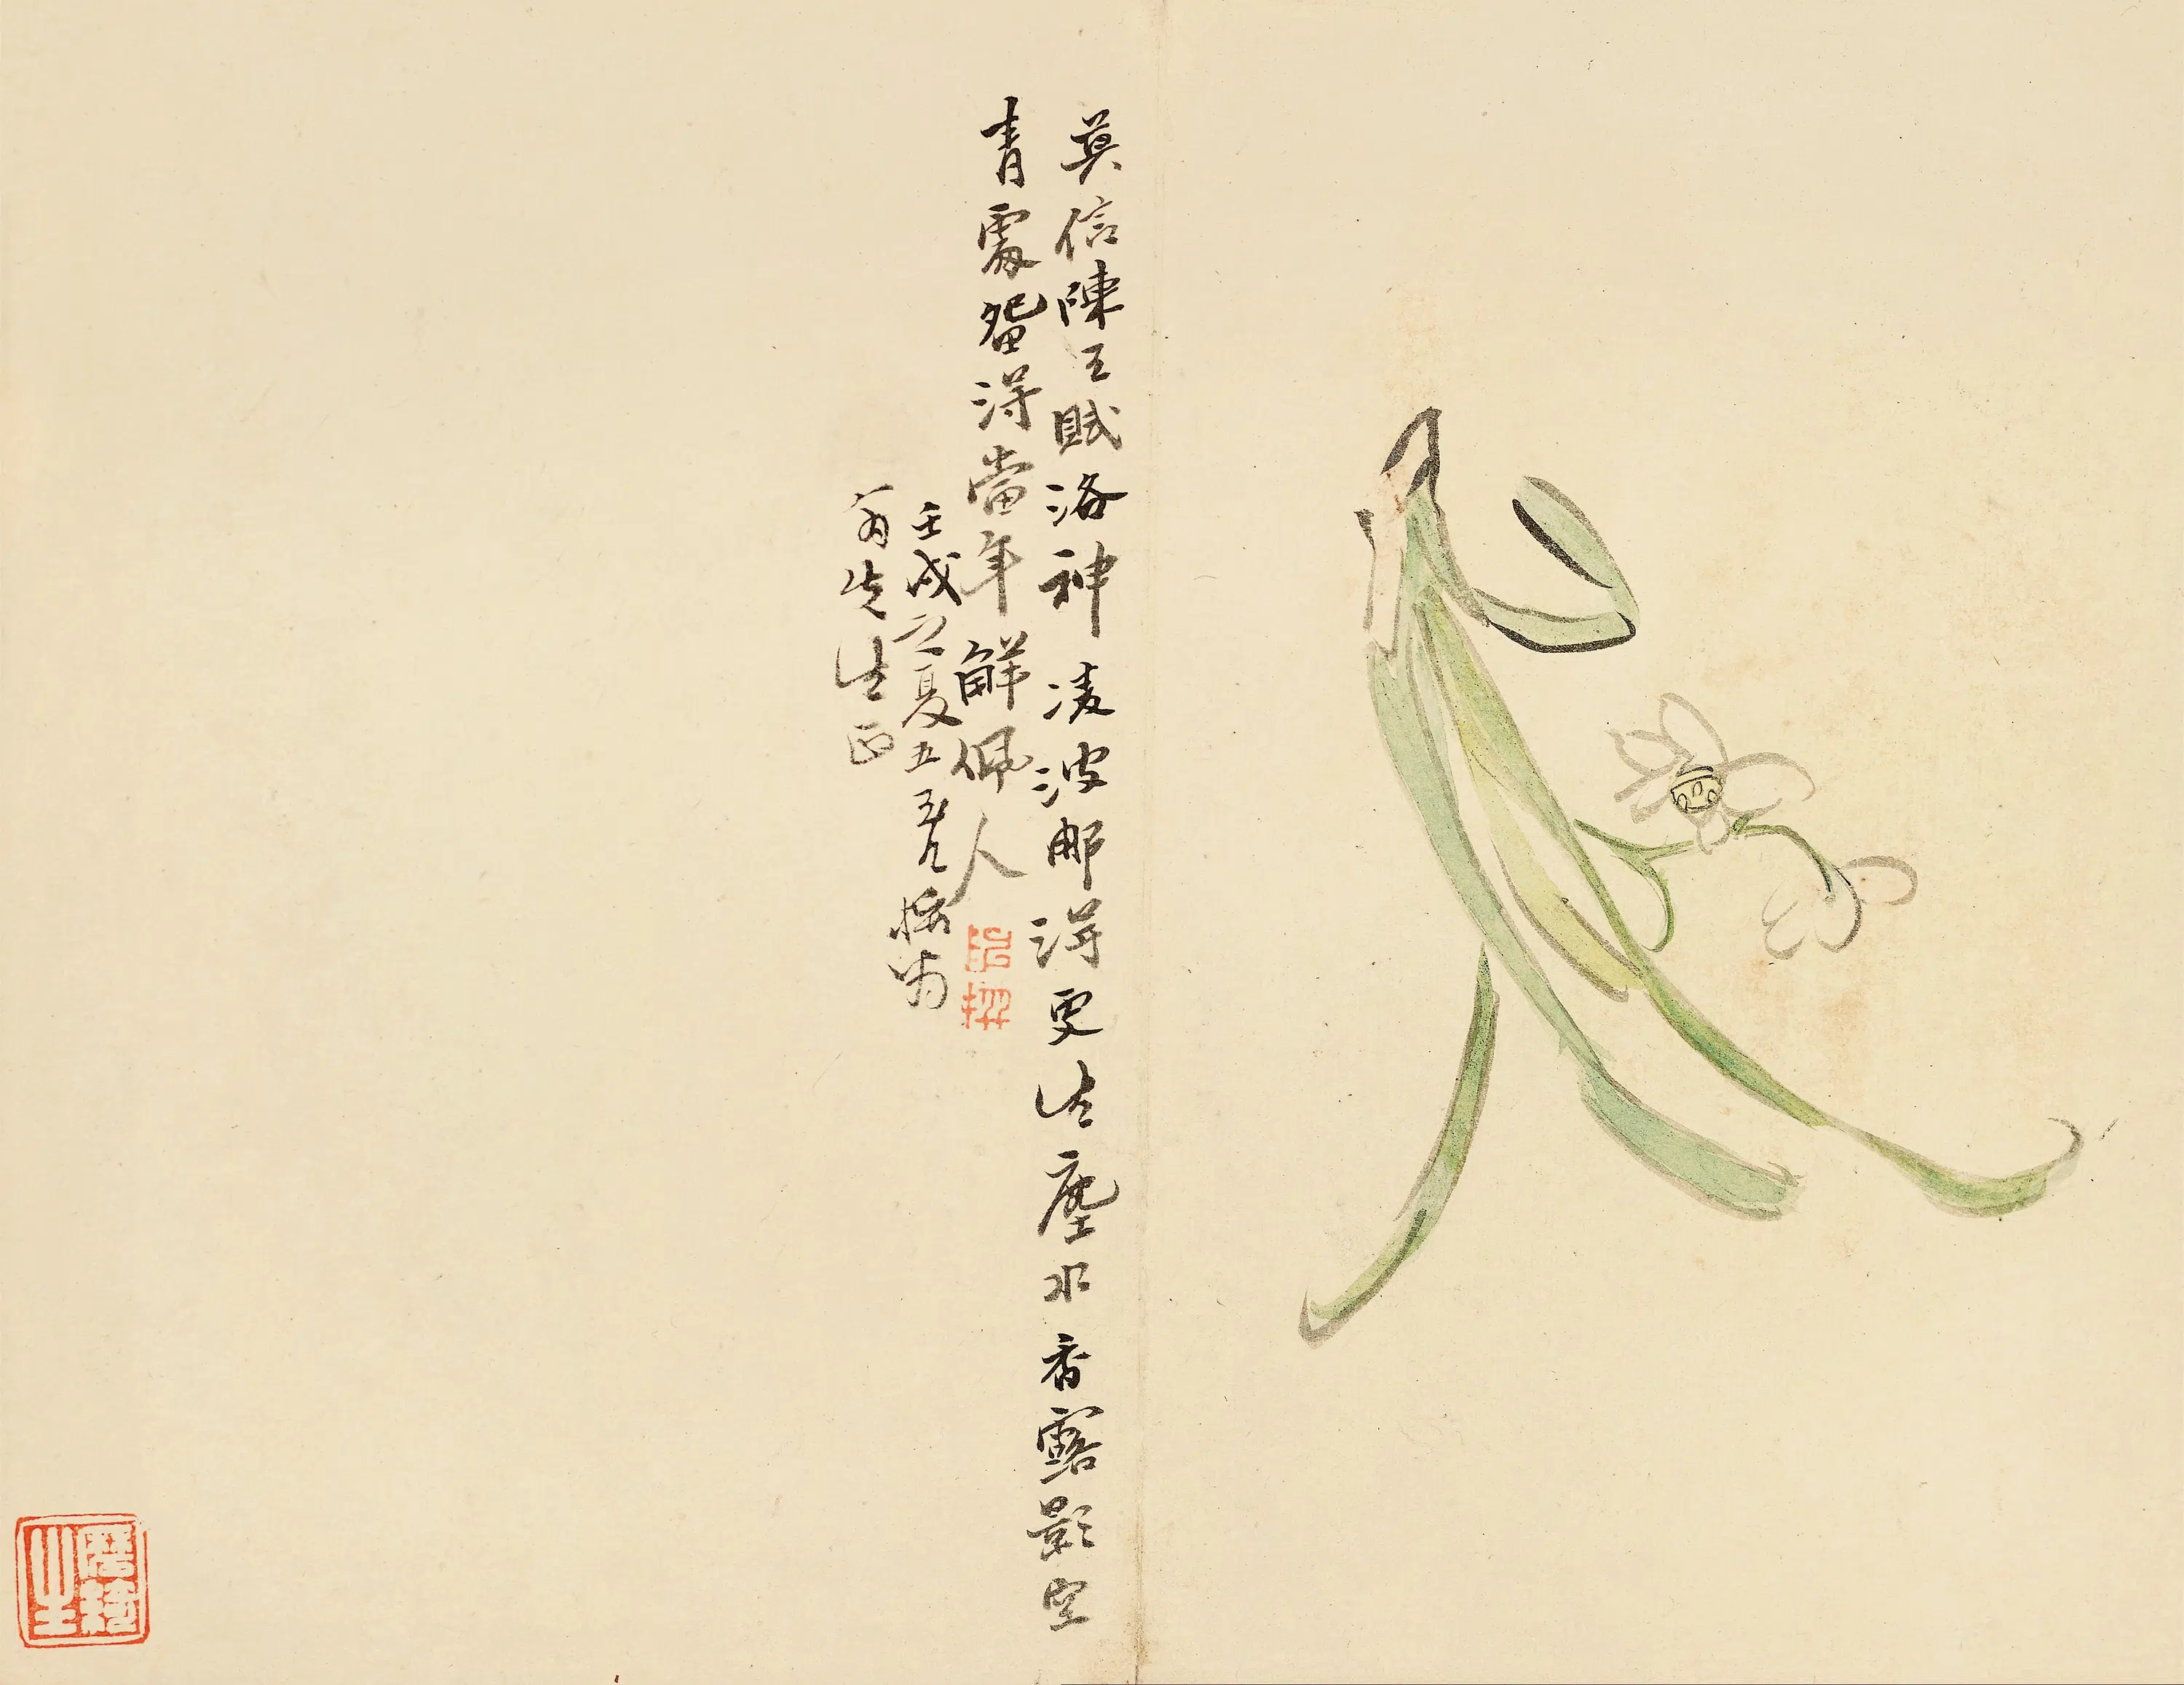 莫信陳王賦洛神凌波那得更生塵水香露影空
青處留得當年解佩人
壬戌之夏五
先生正